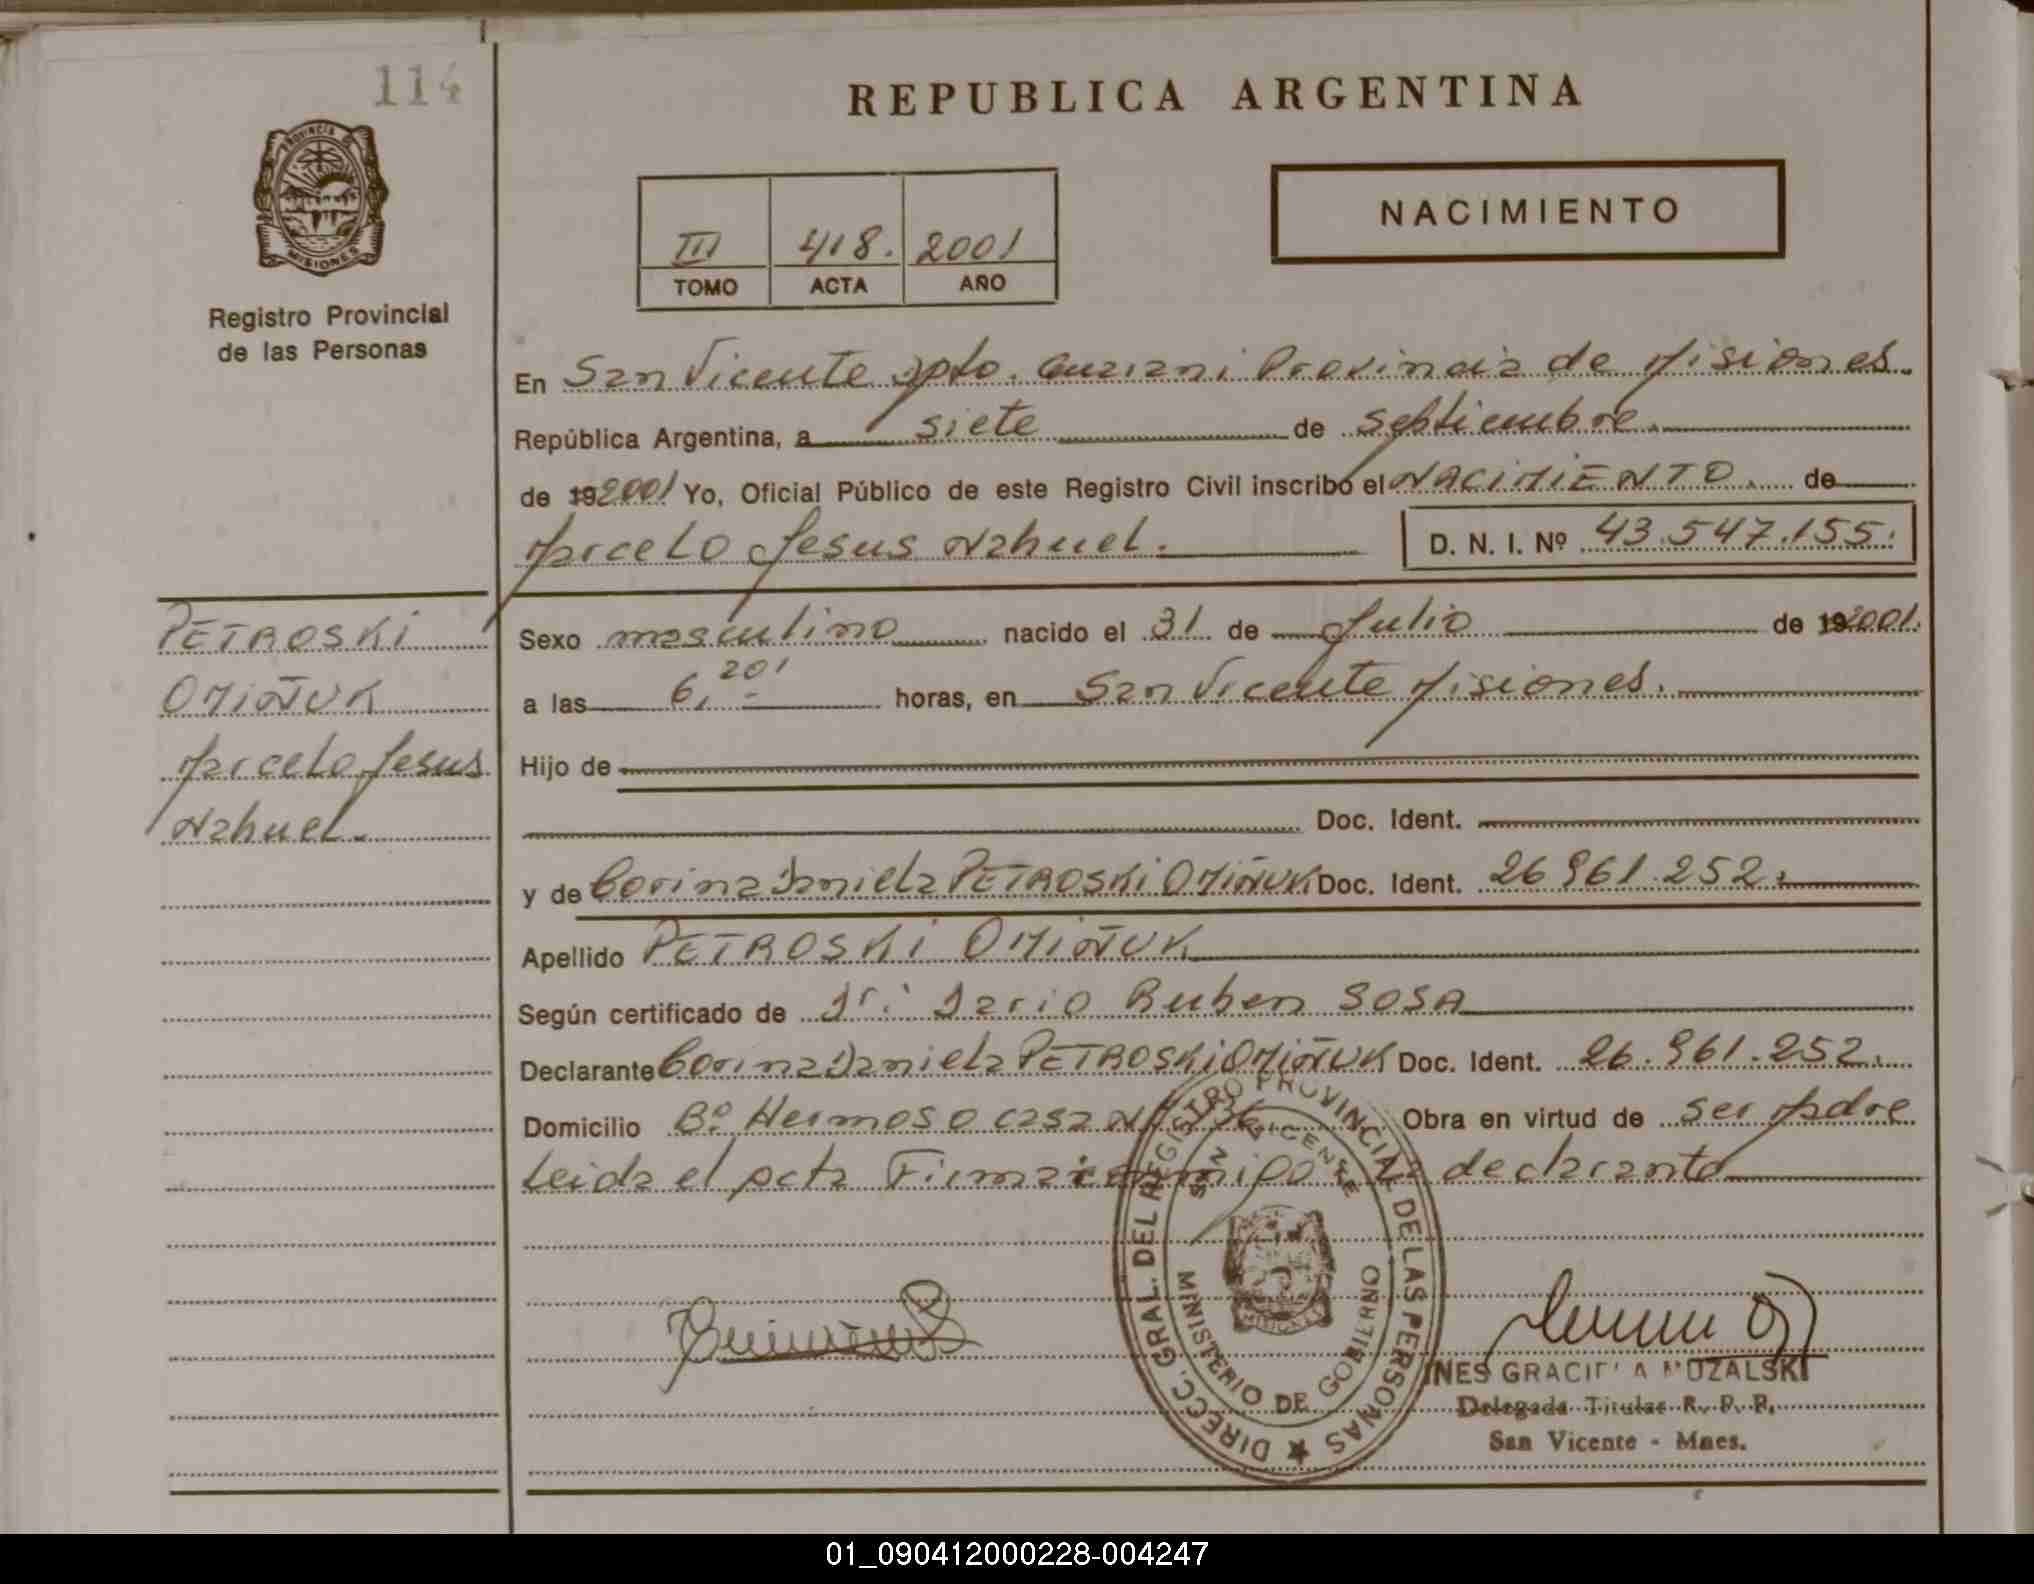 114
REPUBLICA ARGENTINA
PROVINCIA DE
MISIONES
NACIMIENTO
III 418. 2001
TOMO ACTA AÑO
Registro Provincial
de las Personas
En San Vicente Dpto. Guarani Provincia de Misiones.
República Argentina, a siete de septiembre.
de 192001 Yo, Oficial Público de este Registro Civil inscribo el NACIMIENTO. de
Marcelo Jesus Nahuel. D. N. I. Nº 43.547.155.
PETROSKI
OMIÑUK
Marcelo Jesus
Nahuel.
Sexo masculino nacido el 31 de Julio de 192001.
a las 6,20' horas, en San Vicente Misiones.
Hijo de
Doc. Ident.
y de Corina Daniela PETROSKI OMIÑUK Doc. Ident. 26 961.252.
Apellido PETROSKI OMIÑUK
Según certificado de Dr: Dario Ruben SOSA
Declarante Corina Daniela PETROSKI OMIÑUK Doc. Ident. 26.961.252.
Domicilio Bº Hermoso casa Nº 36 Obra en virtud de ser Madre
Leida el acta Firma conmigo la declarante
DIRECC. GRAL. DEL REGISTRO PROVINCIAL DE LAS PERSONAS
SAN VICENTE
MISIONES
MINISTERIO DE GOBIERNO
INES GRACIELA MUZALSKI
Delegada Titular R. P. P.
San Vicente - Mnes.
01_090412000228-004247